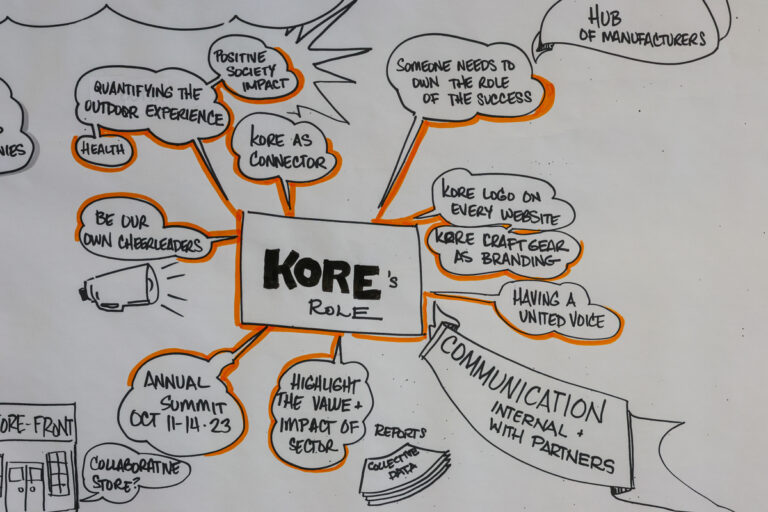 HUB
OF MANUFACTURERS
POSITIVE
SOCIETY
IMPACT
SOMEONE NEEDS TO
OWN THE ROLE
OF THE SUCCESS
QUANTIFYING THE
OUTDOOR EXPERIENCE
HEALTH
KORE AS
CONNECTOR
NIES
KORE LOGO ON
EVERY WEBSITE
BE OUR
OWN CHEERLEADERS
KORE CRAFT GEAR
AS BRANDING
KORE's
ROLE
HAVING A
UNITED VOICE
COMMUNICATION
INTERNAL +
WITH PARTNERS
ANNUAL
SUMMIT
OCT 11-14·23
HIGHLIGHT
THE VALUE +
IMPACT OF
SECTOR
REPORTS
COLLECTIVE
DATA
ORE-FRONT
COLLABORATIVE
STORE?